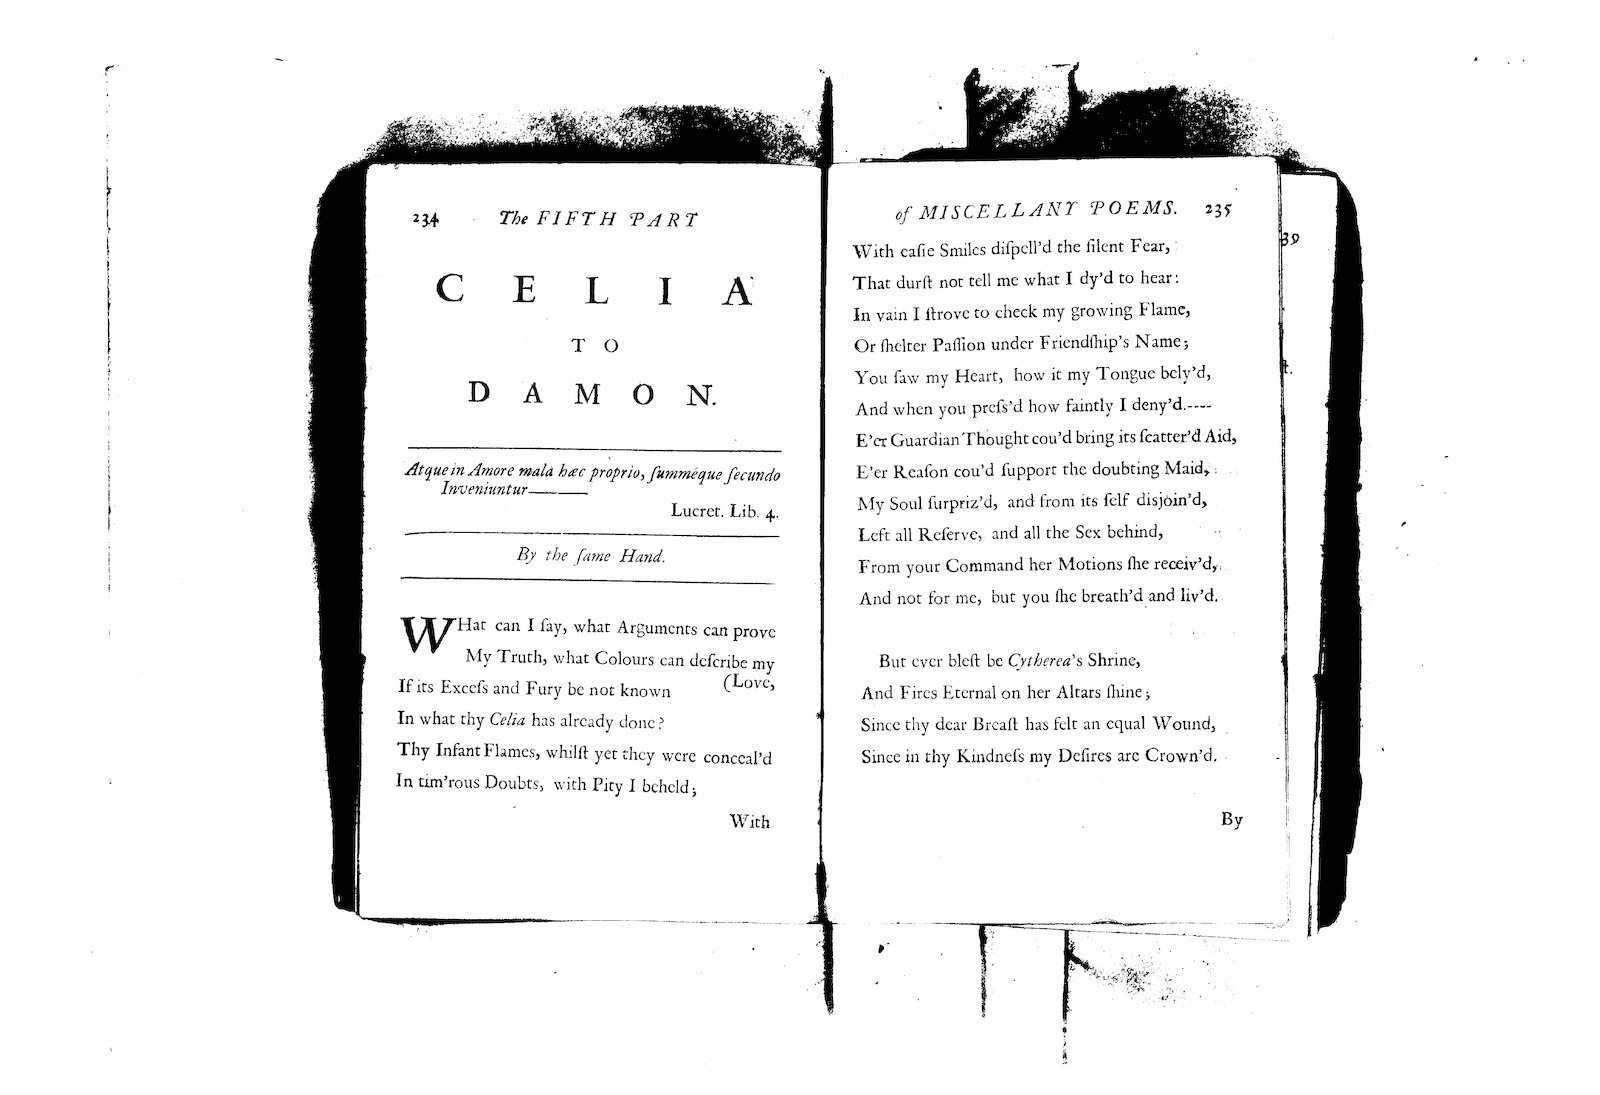 234 The FIFTH PART
CELIA
TO
DAMON.
Atque in Amore mala hæc proprio, ſumméque ſecundo
Inveniuntur———
Lucret. Lib. 4.
By the ſame Hand.
WHat can I ſay, what Arguments can prove
My Truth, what Colours can deſcribe my
(Love,
If its Exceſs and Fury be not known
In what thy Celia has already done?
Thy Infant Flames, whilſt yet they were conceal'd
In tim'rous Doubts, with Pity I beheld;
With
of MISCELLANY POEMS. 235
With eaſie Smiles diſpell'd the ſilent Fear,
That durſt not tell me what I dy'd to hear:
In vain I ſtrove to check my growing Flame,
Or ſhelter Paſſion under Friendſhip's Name;
You ſaw my Heart, how it my Tongue bely'd,
And when you preſs'd how faintly I deny'd.----
E'er Guardian Thought cou'd bring its ſcatter'd Aid,
E'er Reaſon cou'd ſupport the doubting Maid,
My Soul ſurpriz'd, and from its ſelf disjoin'd,
Left all Reſerve, and all the Sex behind,
From your Command her Motions ſhe receiv'd,
And not for me, but you ſhe breath'd and liv'd.
But ever bleſt be Cytherea's Shrine,
And Fires Eternal on her Altars ſhine;
Since thy dear Breaſt has felt an equal Wound,
Since in thy Kindneſs my Deſires are Crown'd.
By
39
t.